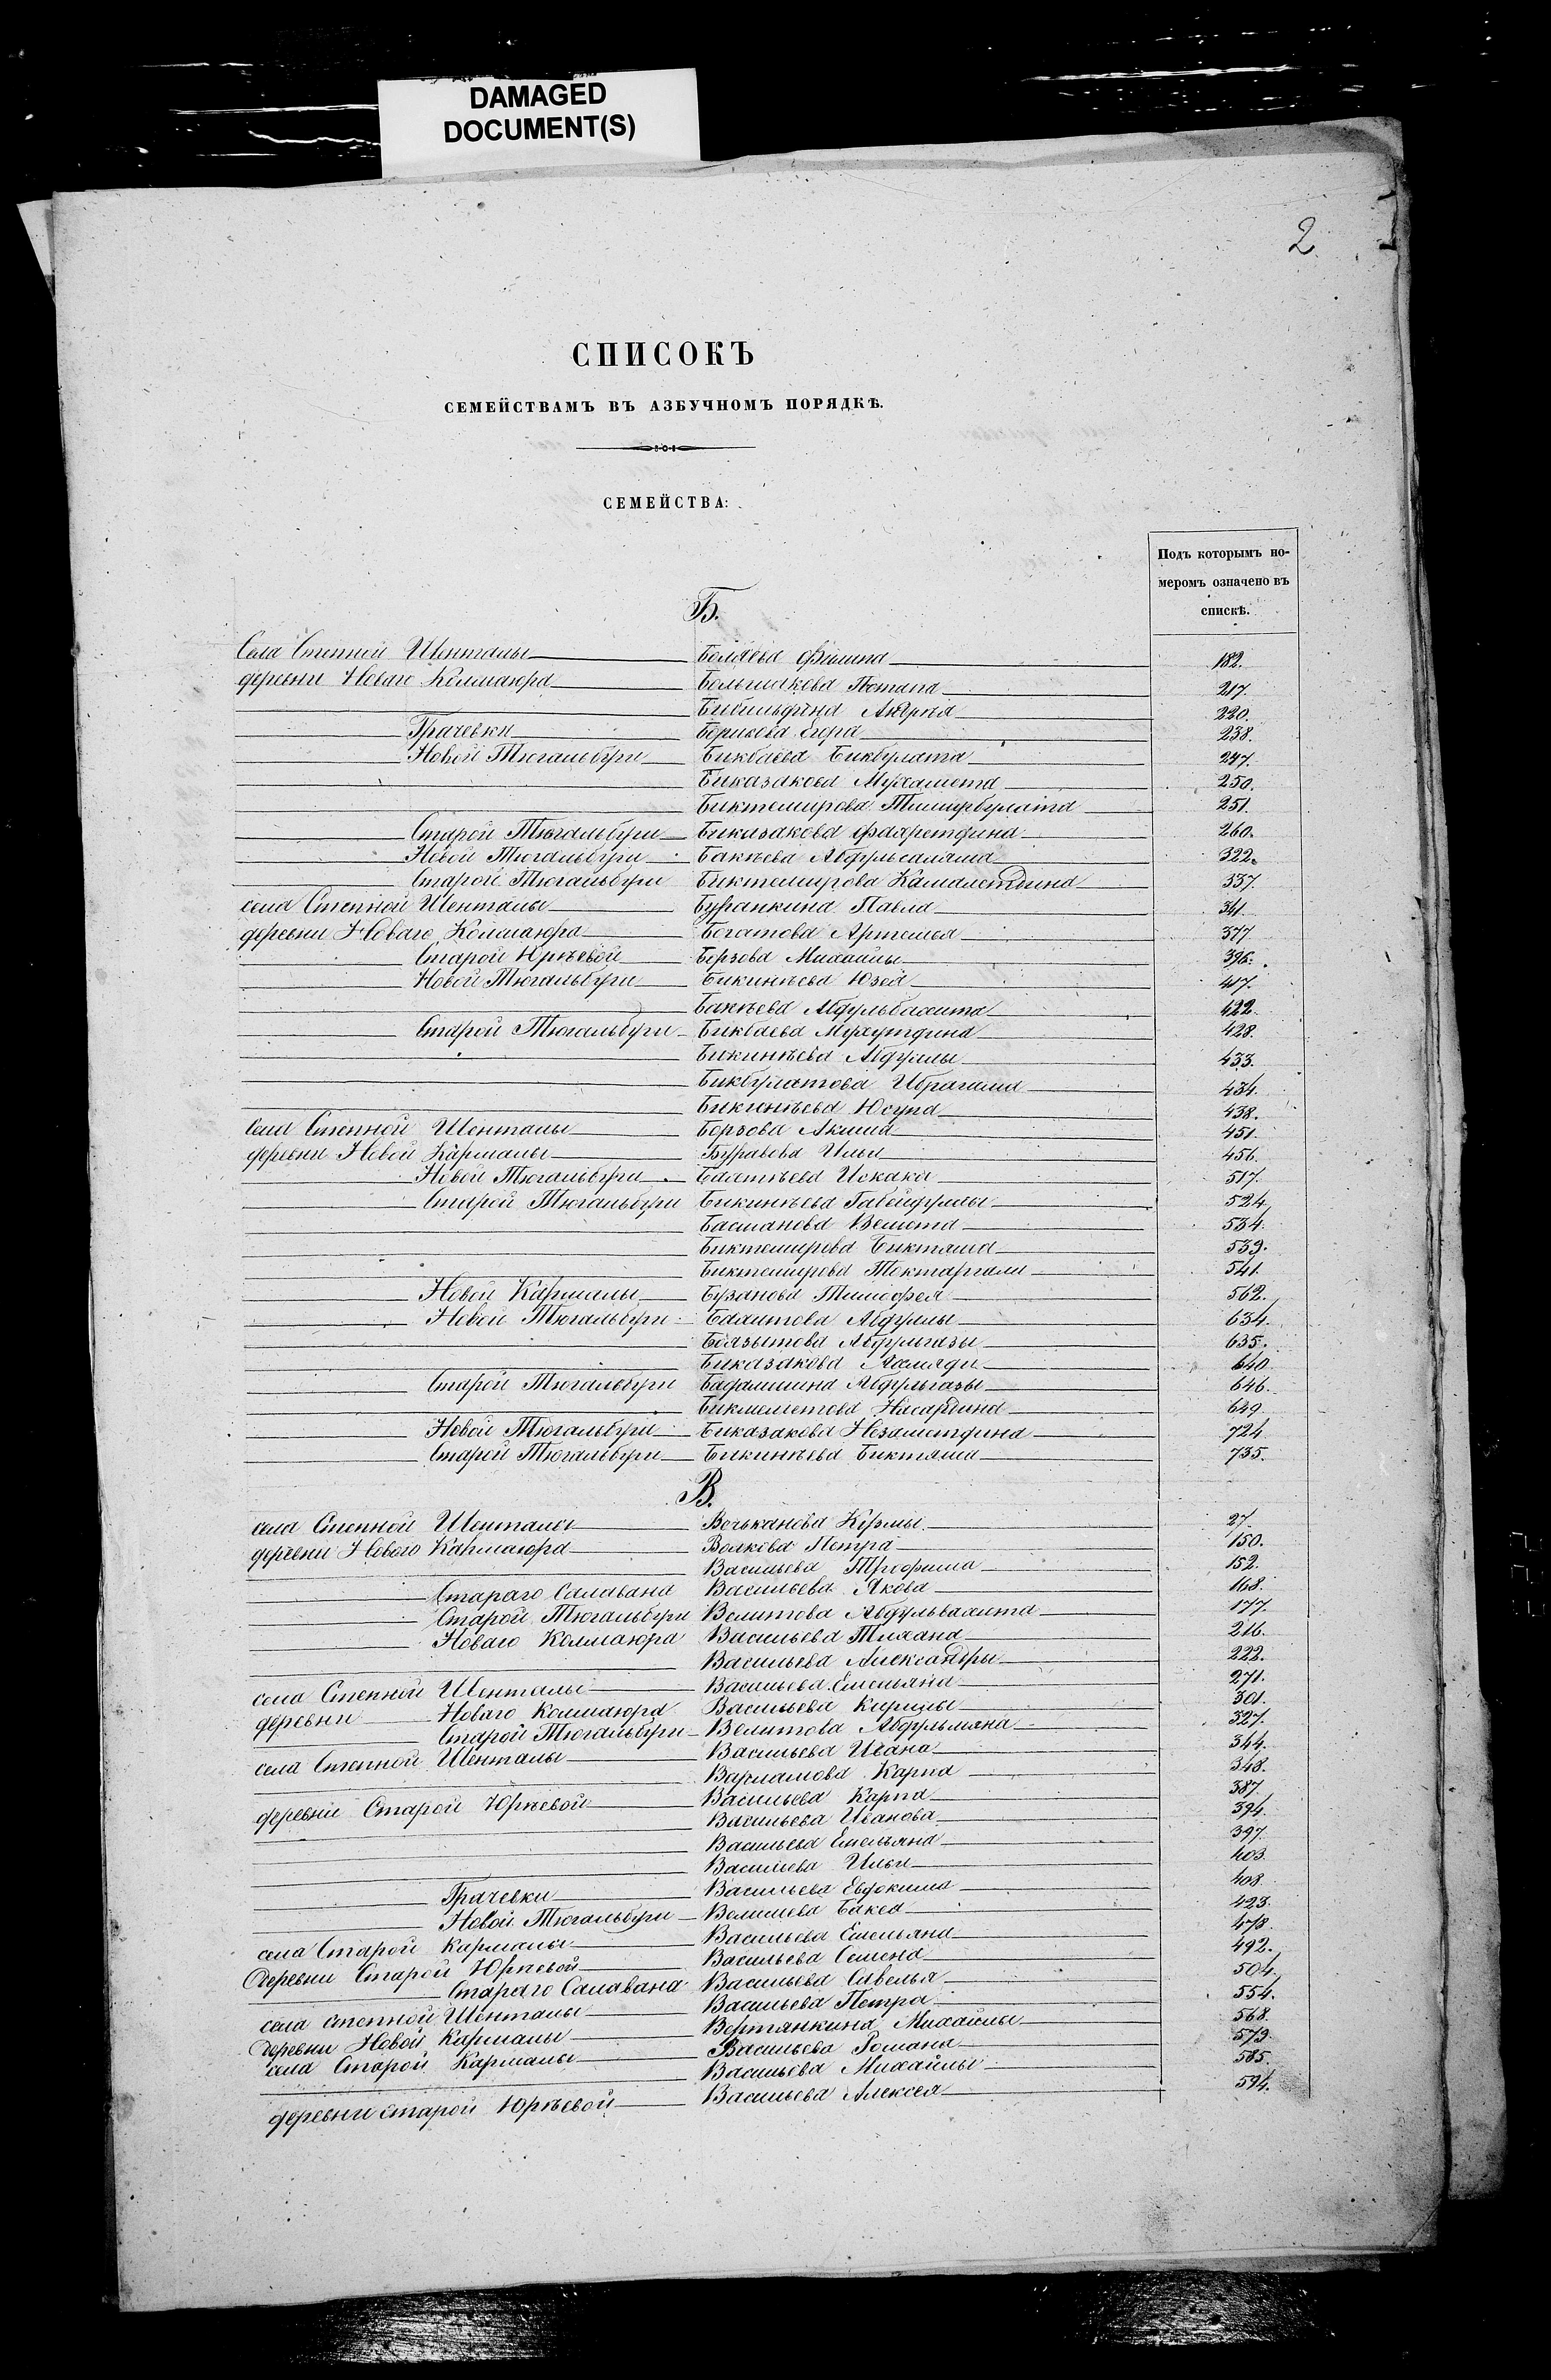 DAMAGED
DOCUMENT(S)
2
СПИСОКЪ
СЕМЕЙСТВАМЪ ВЪ АЗБУЧНОМЪ ПОРЯДКѢ.
СЕМЕЙСТВА:
Подъ которымъ но-
меромъ означено въ
спискѣ.
Б.
Села Степной Шенталы Беляева Филипа 182.
деревни Новаго Колмаюра Большакова Потапа 217.
Андрея 220.
Грачевки Борисова Егора 238.
Новой Тюгальбуги Бикбаева Бикбулата 247.
Биказакова Мухамета 250.
Биктемирова Тимирбулата 251.
Старой Тюгальбуги Биказакова Фахретдина 260.
Новой Тюгальбуги Бакѣева Абдульсаляма 322.
Старой Тюгальбуги Биктемирова Камалетдина 337.
села Степной Шенталы Буранкина Павла 341.
деревни Новаго Колмаюра Богатова Артемья 377
Старой Юрѣевой Борзова Михайлы 396.
Новой Тюгальбуги Бикинѣева Юзея 417.
Бакѣева Абдульвахита 422
Старой Тюгальбуги Бикбаева Мухутдина 428.
Бикинѣева Абдуллы 433.
Бикбулатова Ибрагима 434.
Бикинѣева Юсупа 438.
села Степной Шенталы Борзова Акима 451.
деревни Новой Кармалы Буравова Ильи 456.
Новой Тюгальбуги Искака 517.
Старой Тюгальбуги Бикинѣева Габейдуллы 524
Басманова 534.
Биктемирова Бикташа 539.
Биктемирова Токтаргали 541.
Новой Кармалы Бузанова Тимофея 562.
Новой Тюгальбуги Бахитова Абдуллы 634.
Баязытова Абдулгазы 635.
Биказакова 640
Старой Тюгальбуги Бадамшина Абдулгазы 646.
Бикмеметова 649
Новой Тюгальбуги Биказакова Незаметдина 724
Старой Тюгальбуги Бикинѣева Бикташа 735.
В.
села Степной Шенталы Вечканова Кузмы 27.
деревни Новаго Кармаюра Волкова Петра 150.
Васильева Трофима 152.
Стараго Салавана Васильева Якова 168.
Старой Тюгальбуги Велитова Абдульвахита 177.
Новаго Колмаюра Васильева Тихана 216.
Васильева Александры 222.
села Степной Шенталы Васильева Емельяна 271.
деревни Новаго Колмаюра Васильева Кирилы 301.
Старой Тюгальбуги Велитова Абдульмяна 327.
села Степной Шенталы Васильева Ивана 344.
Варламова Карпа 348.
деревни Старой Юрѣевой Васильева Карпа 387
Васильева Иванова 394.
Васильева Емельяна 397.
Васильева Ильи 403.
Грачевки Васильева Евдокима 408
Новой Тюгальбуги Велишева Бакея 423.
села Старой Кармалы Васильева Емельяна 478.
деревни Старой Юрѣевой Васильева Семена 492.
Стараго Салавана Васильева Савелья 504.
села степной Шенталы Васильева Петра 554.
деревни Новой Кармалы Вертянкина Михайлы 568.
села Старой Кармалы Васильева Романа 579.
Васильева Михайлы 585.
деревни старой Юрѣевой Васильева Алексея 594.